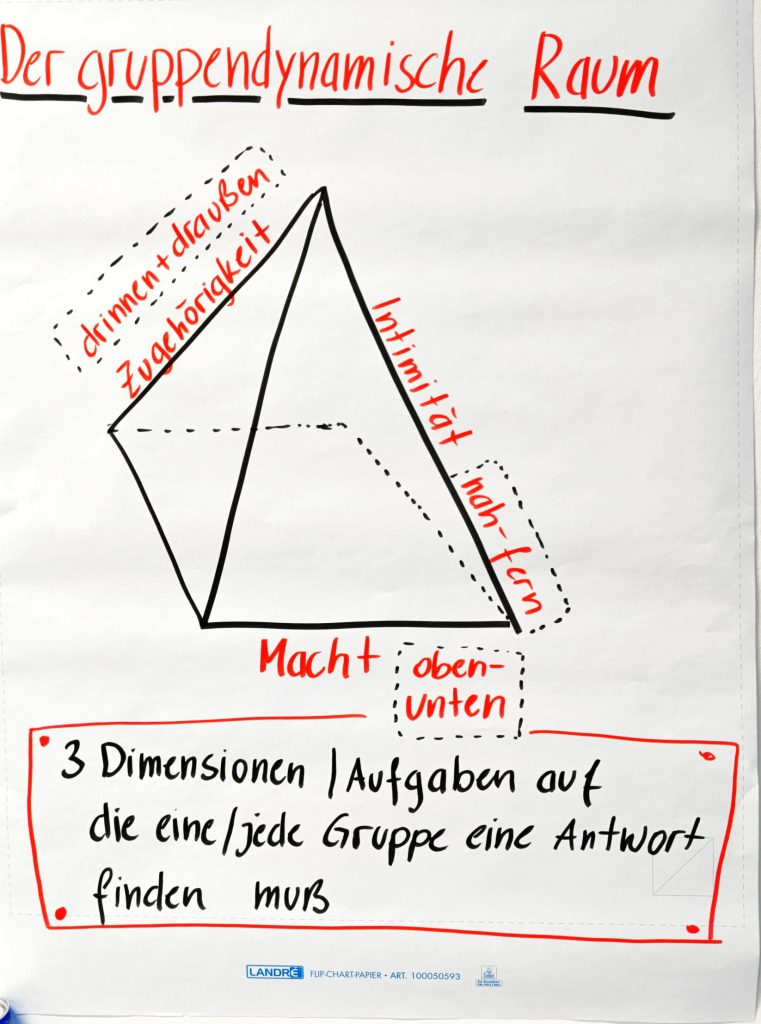 Der gruppendynamische Raum
drinnen + draußen
Zugehörigkeit
Intimität
nah-fern
Macht
oben-
unten
3 Dimensionen / Aufgaben auf
die eine/jede Gruppe eine Antwort
finden muß
LANDRÉ FLIP-CHART-PAPIER • ART. 100050593